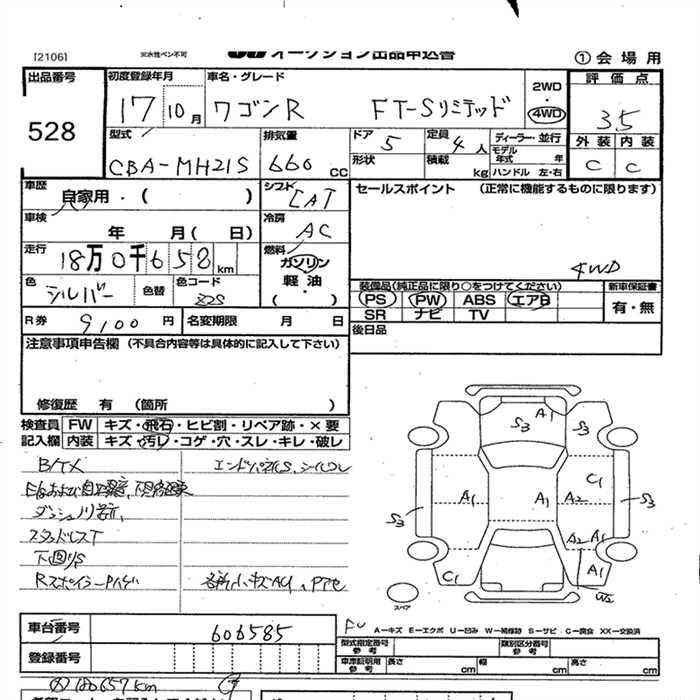 [21061] 示水性ペン不可 オークション出品申込書 ① 会 場 用
出品番号 528
初度登録年月 17 10月
車名・グレード ワゴンR FT-Sリミテッド
2WD ・ 4WD
評価点 3.5
型式 CBA-MH21S
排気量 660 CC
ドア 5 定員 4人
形状 積載 kg
ディーラー・並行
モデル年式 年
ハンドル 左・右
外装 C 内装 C
車歴 自家用・( )
シフト CAT
セールスポイント (正常に機能するものに限ります)
4WD
車検 年 月( 日)
冷房 AC
走行 18万0千658km
燃料 ガソリン 軽油 ・ ( )
色 シルバー 色替 色コード Z2S
装備品(純正品に限り○をつけてください) 新車保証書
PS PW ABS エアB 有・無
SR ナビ TV
R券 9,100円 名変期限 月 日
後日品
注意事項申告欄 (不具合内容等は具体的に記入して下さい)
修復歴 有 (箇所 )
検査員 FW キズ・飛石・ヒビ割・リペア跡・×要
記入欄 内装 キズ・汚レ・コゲ・穴・スレ・キレ・破レ
スタッドレスT
下回りS
A1 S3 S3
C1
S3 A1 A1 A2 S3
A2 A1
C1 A1
W2
スペア
A－キズ E－エクボ U－凹み W－補修跡 S－サビ C－腐食 XX－交換済
車台番号 606585
型式指定番号 参考 類別区分番号 参考
登録番号
車庫証明用 参考 長さ cm 幅 cm 高さ cm